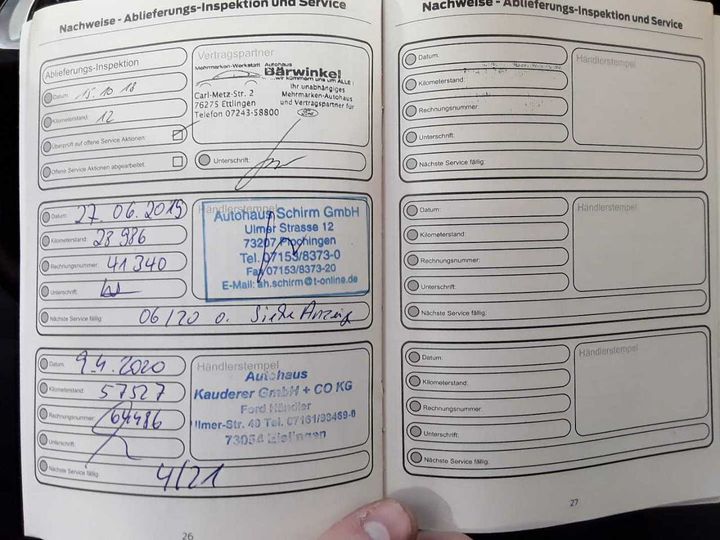 Nachweise - Ablieferungs-Inspektion und Service
Ablieferungs-Inspektion
Datum: 15.10.18
Kilometerstand: 12
Überprüf auf offene Service Aktionen:
Offene Service Aktionen abgearbeitet:
Vertragspartner
Mehrmarken-Werkstatt Autohaus
Bärwinkel
...wir kümmern uns um ALLE!
Carl-Metz-Str. 2
76275 Ettlingen
Telefon 07243-58800
Ihr unabhängiges
Mehrmarken-Autohaus
und Vertragspartner für
Ford
Unterschrift:
Datum: 27.06.2019
Kilometerstand: 23986
Rechnungsnummer: 41340
Unterschrift:
Nächste Service fällig: 06/20 o. Siehe Anzeige
Händlerstempel
Autohaus Schirm GmbH
Ulmer Strasse 12
73207 Plochingen
Tel. 07153/8373-0
Fax 07153/8373-20
E-Mail: ah.schirm@t-online.de
Datum: 9.4.2020
Kilometerstand: 57527
Rechnungsnummer: 64486
Unterschrift:
Nächste Service fällig: 4/21
Händlerstempel
Autohaus
Kauderer GmbH + CO KG
Ford Händler
Ulmer-Str. 40 Tel.
73054 Eislingen
26
Nachweise - Ablieferungs-Inspektion und Service
Datum:
Kilometerstand:
Rechnungsnummer:
Unterschrift:
Nächste Service fällig:
Händlerstempel
Datum:
Kilometerstand:
Rechnungsnummer:
Unterschrift:
Nächste Service fällig:
Händlerstempel
Datum:
Kilometerstand:
Rechnungsnummer:
Unterschrift:
Nächste Service fällig:
Händlerstempel
27